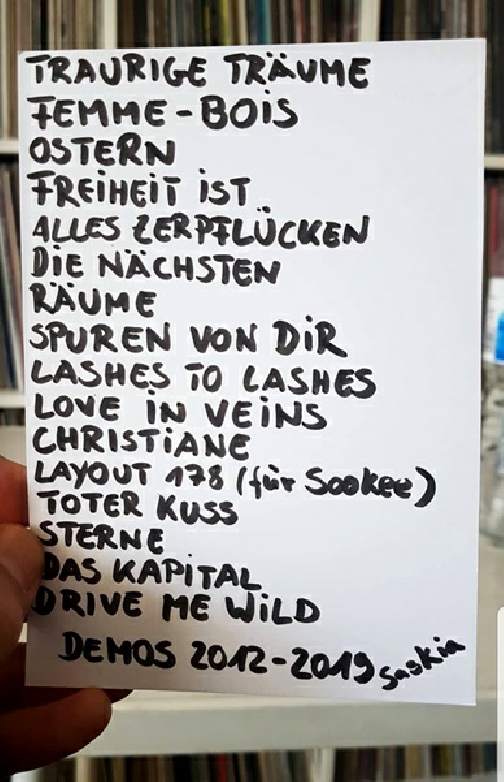 TRAURIGE TRÄUME
FEMME-BOIS
OSTERN
FREiHEiT iST
ALLES ZERPFLÜCKEN
DiE NÄCHSTEN
RÄUME
SPUREN VON DiR
LASHES TO LASHES
LOVE iN VEiNS
CHRISTiANE
LAYOUT 178 (für Sookee)
TOTER KUSS
STERNE
DAS KAPiTAL
DRIVE ME WiLD
DEMOS 2012-2019 Saskia